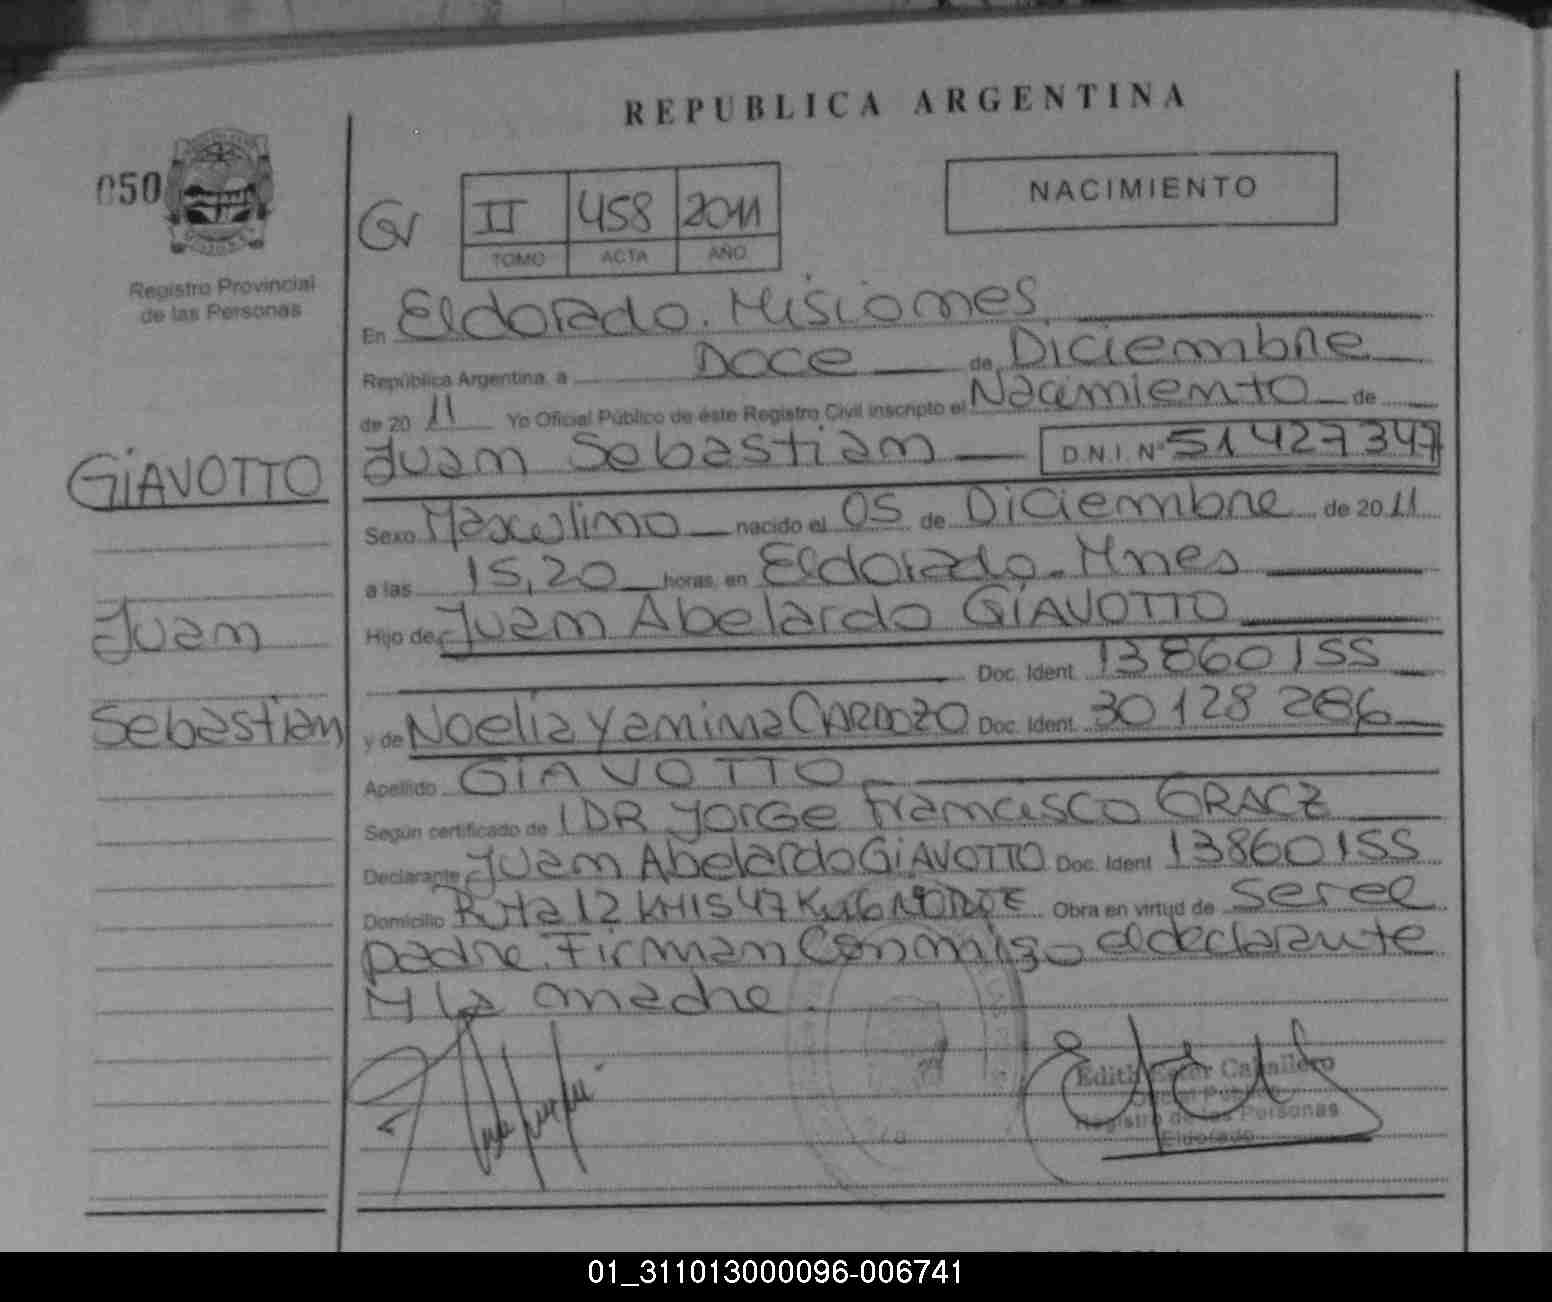 REPUBLICA ARGENTINA
050
Registro Provincial
de las Personas
II 458 2011
TOMO ACTA AÑO
NACIMIENTO
En Eldorado. Misiones
República Argentina, a Doce de Diciembre
de 2011 Yo Oficial Público de éste Registro Civil inscripto el Nacimiento de
Juan Sebastian D.N.I. Nº 51427347
GIAVOTTO
Sexo Masculino nacido el 05 de Diciembre de 2011
a las 15,20 horas, en Eldorado. Mnes
Juan
Hijo de Juan Abelardo GIAVOTTO
Doc. Ident. 13860155
Sebastian
y de Noelia Yanina CARDOZO Doc. Ident. 30128286
Apellido GIAVOTTO
Según certificado de DR Jorge Francisco GRACZ
Declarante Juan Abelardo GIAVOTTO Doc. Ident 13860155
Domicilio Ruta 12 Obra en virtud de ser el
padre. Firman Conmigo el declarante
y la madre.
Edith Ester Caballero
Oficial Público
Registro de las Personas
Eldorado
01_311013000096-006741